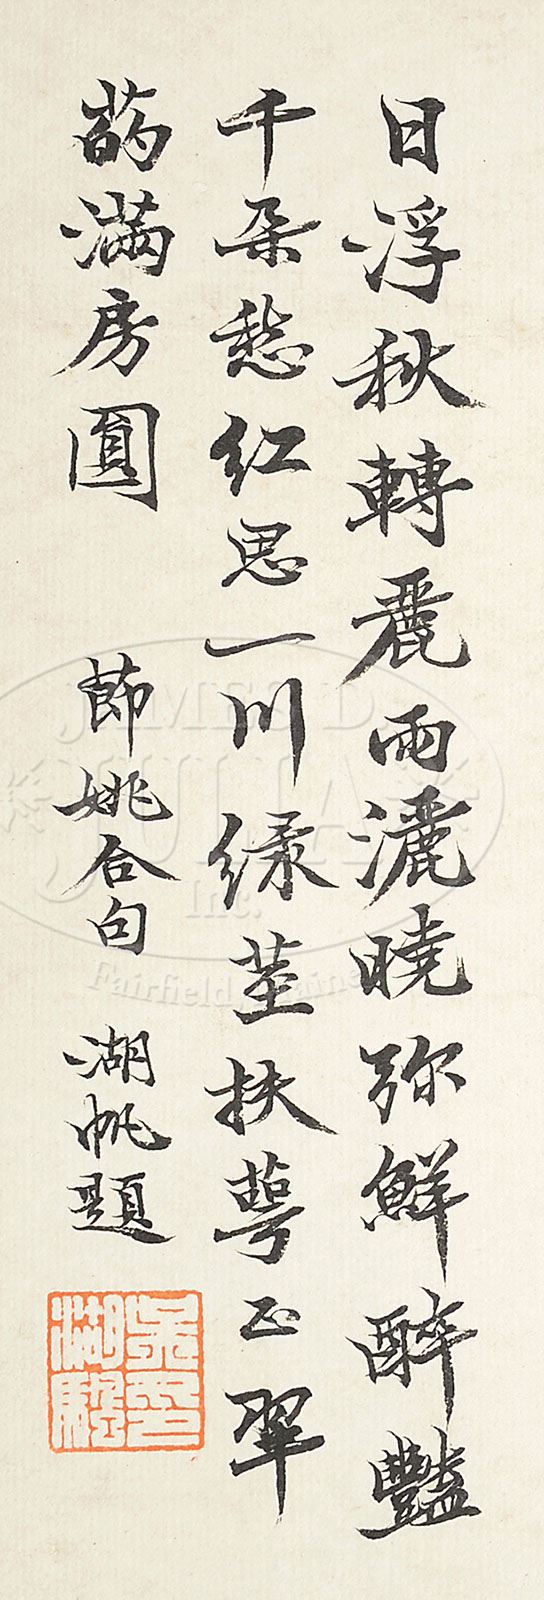 日浮秋轉麗雨灑曉弥鮮醉豔
千朵愁紅思一川緑莖扶萼正翠
菂滿房圓 節姚合句 湖帆題
JAMES D.
JULIA
Inc.
Fairfield, Maine